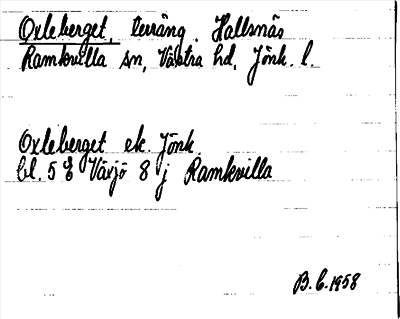 Oxleberget, terräng. Hallsnäs
Ramkvilla sn, Västra hd, Jönk. l.
Oxleberget ek. Jönk.
bl. 5 E Växjö 8 j Ramkvilla
B. C. 1958